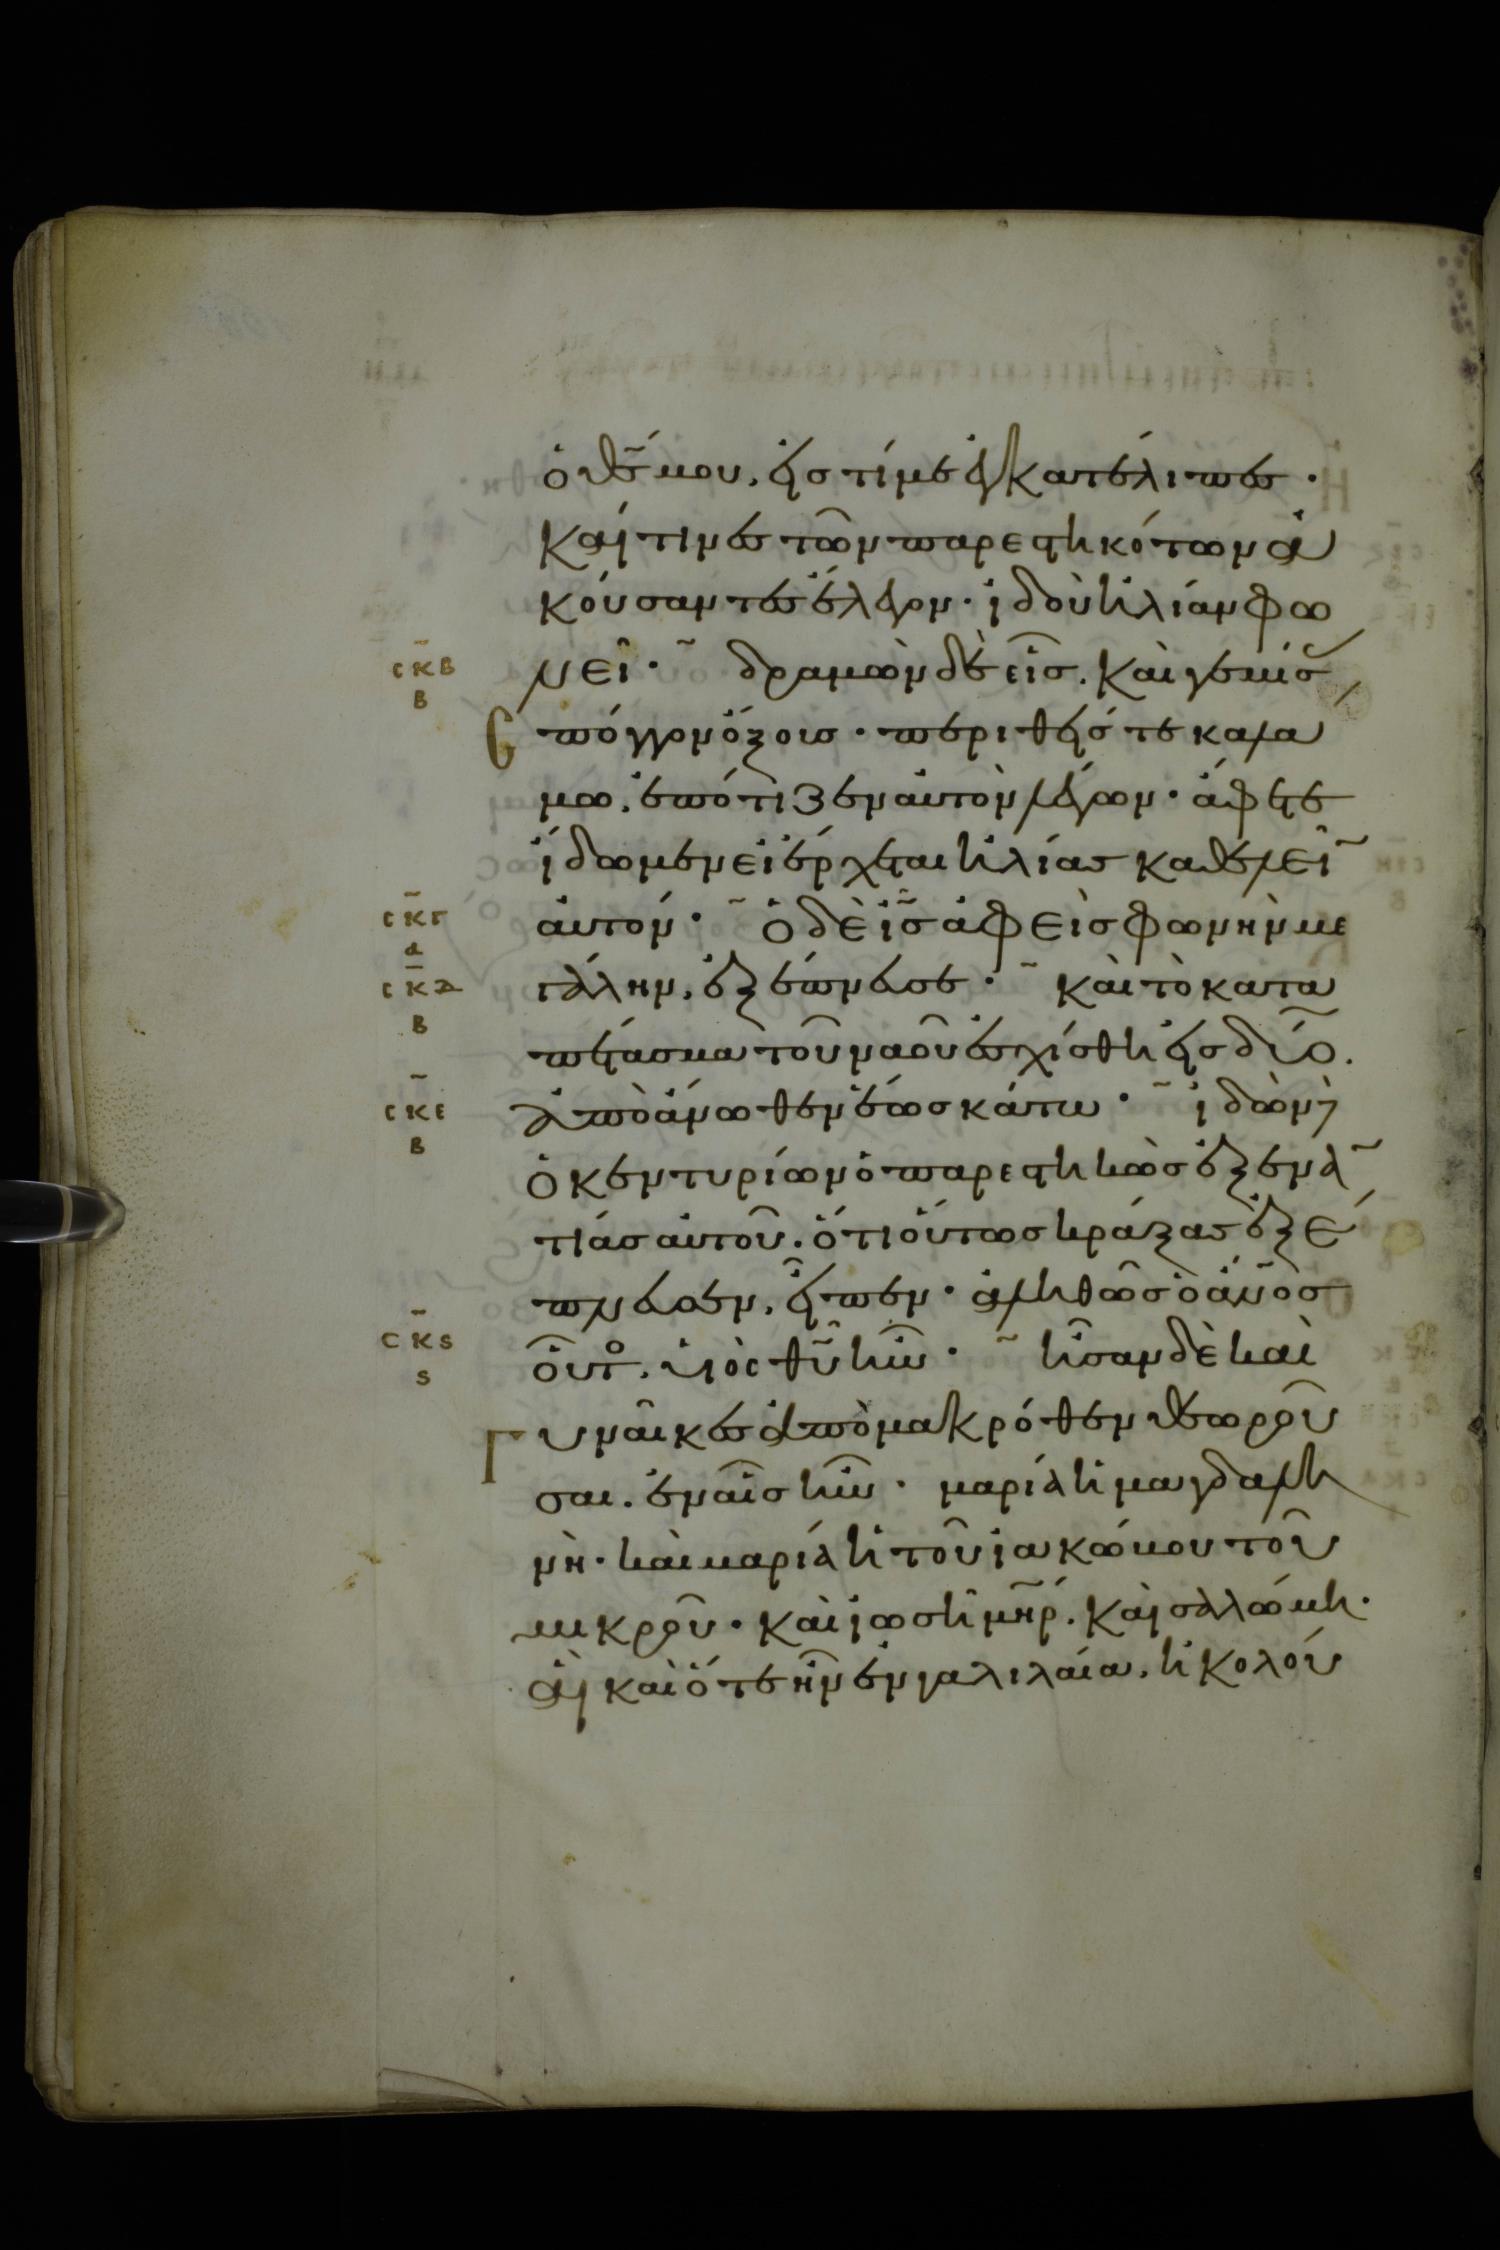 ὁ θ̅ς μου, εἰς τί με ἐγκατέλιπες·
καί τινες τῶν παρεστηκότων ἀ
κούσαντες ἔλεγον· ἰδοὺ ἠλίαν φω
σ̅κ̅β̅ β νεῖ· δραμὼν δὲ εἷς. καὶ γεμίσ(ας)
σπόγγον ὄξους· περιθείς τε καλά
μω, ἐπότιζεν αὐτὸν λέγων· ἄφετε
ἴδωμεν εἰ ἔρχεται ἠλίας καθελεῖ(ν)
σ̅κ̅γ̅ α αὐτόν· ὁ δὲ ι̅ς̅ ἀφεὶς φωνὴν με
σ̅κ̅δ̅ β γάλην, ἐξέπνευσε· καὶ τὸ κατα
πέτασμα τοῦ ναοῦ ἐσχίσθη εἰς δύο.
σ̅κ̅ε̅ β ἀπὸ ἄνωθεν ἕως κάτω· ἰδὼν δὲ
ὁ κεντυρίων ὁ παρεστηκὼς ἐξ ἐναν
τίας αὐτοῦ. ὅτι οὕτως κράξας ἐξέ
πνευσεν, εἶπεν· ἀληθῶς ὁ ἄνος
σ̅κ̅ς̅ ς οὗτος, υἱὸς θ̅υ̅ ἦν· ἦσαν δὲ καὶ
γυναῖκες ἀπὸ μακρόθεν θεωροῦ
σαι. ἐν αἷς ἦν· μαρία ἡ μαγδαλη
νὴ· καὶ μαρία ἡ τοῦ ἰακώβου τοῦ
μικροῦ· καὶ ἰωσῆ μη̅ρ. καὶ σαλώμη·
αἳ καὶ ὅτε ἦν ἐν γαλιλαία, ἠκολού